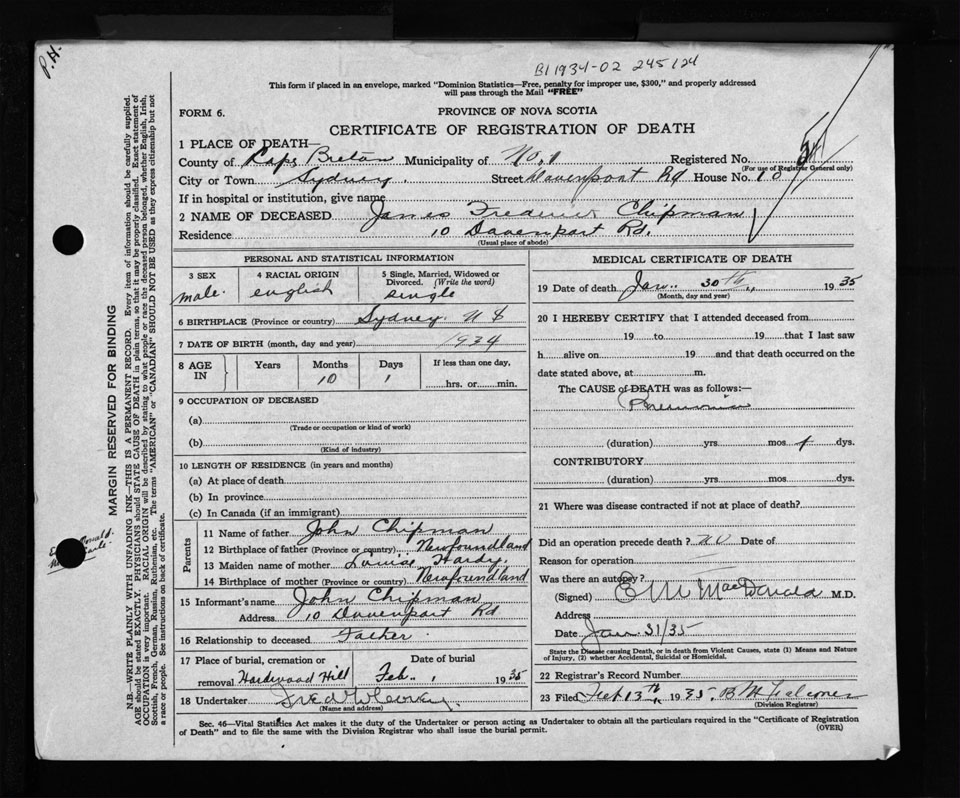 P.H.
B1 1934-02 245124
This form if placed in an envelope, marked "Dominion Statistics—Free, penalty for improper use, $300," and properly addressed
will pass through the Mail "FREE"
FORM 6.
PROVINCE OF NOVA SCOTIA
CERTIFICATE OF REGISTRATION OF DEATH
1 PLACE OF DEATH—
County of Cape Breton Municipality of No. 1 Registered No.
(For use of Registrar General only)
City or Town Sydney. Street Davenport Rd House No. 10
If in hospital or institution, give name
2 NAME OF DECEASED James Frederick Chipman
Residence 10 Davenport Rd.
(Usual place of abode)
PERSONAL AND STATISTICAL INFORMATION
3 SEX male.
4 RACIAL ORIGIN english
5 Single, Married, Widowed or Divorced. (Write the word) single
6 BIRTHPLACE (Province or country) Sydney N S
7 DATE OF BIRTH (month, day and year) 1934
8 AGE IN Years Months Days If less than one day,
10 1 hrs. or min.
9 OCCUPATION OF DECEASED
(a)
(Trade or occupation or kind of work)
(b)
(Kind of industry)
10 LENGTH OF RESIDENCE (in years and months)
(a) At place of death
(b) In province
(c) In Canada (if an immigrant)
Parents
11 Name of father John Chipman
12 Birthplace of father (Province or country) Newfoundland
13 Maiden name of mother Louise Hardy
14 Birthplace of mother (Province or country) Newfoundland
15 Informant's name John Chipman
Address 10 Davenport Rd
16 Relationship to deceased Father.
17 Place of burial, cremation or removal Hardwood Hill Date of burial Feb. 1 1935
18 Undertaker
(Name and address)
MEDICAL CERTIFICATE OF DEATH
19 Date of death Jan. 30th 1935
(Month, day and year)
20 I HEREBY CERTIFY that I attended deceased from
19 to 19 that I last saw
h alive on 19 and that death occurred on the
date stated above, at m.
The CAUSE of DEATH was as follows:—
Pneumonia
(duration) yrs. mos. dys.
CONTRIBUTORY
(duration) yrs. mos. dys.
21 Where was disease contracted if not at place of death?
Did an operation precede death? no Date of
Reason for operation
Was there an autopsy?
(Signed) E. M. MacDonald M.D.
Address
Date Jan 31/35
State the Disease causing Death, or in death from Violent Causes, state (1) Means and Nature
of Injury, (2) whether Accidental, Suicidal or Homicidal.
22 Registrar's Record Number
23 Filed Feb 13th 1935.
(Division Registrar)
Sec. 46—Vital Statistics Act makes it the duty of the Undertaker or person acting as Undertaker to obtain all the particulars required in the "Certificate of Registration
of Death" and to file the same with the Division Registrar who shall issue the burial permit.
(OVER)
MARGIN RESERVED FOR BINDING
N.B.—WRITE PLAINLY WITH UNFADING INK—THIS IS A PERMANENT RECORD. Every item of information should be carefully supplied.
AGE should be stated EXACTLY. PHYSICIANS should STATE CAUSE OF DEATH in plain terms, so that it may be properly classified. Exact statement of
OCCUPATION is very important. RACIAL ORIGIN will be described by stating to what people or race the deceased person belonged, whether English, Irish,
Scottish, French, German, Russian, Ruthenian, etc. The terms "AMERICAN" or "CANADIAN" SHOULD NOT BE USED as they express citizenship but not
a race or people. See instructions on back of certificate.